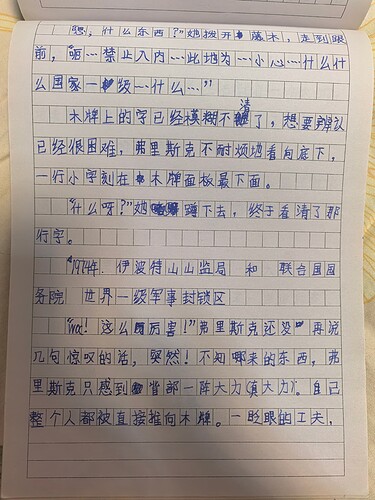 嗯，什么东西？”她拨开落木，走到跟
前，“呃…禁止入内…此地为…小心…什么什
么国家一级…什么…”
木牌上的字已经模糊不清了，想要辨认
已经很困难，弗里斯克不耐烦地看向底下，
一行小字刻在木牌面板最下面。
“什么呀？”她蹲下去，终于看清了那
行字。
“1974年．伊波特山山监局 和 联合国国
务院 世界一级军事封锁区
“woc！这么厉害！”弗里斯克还没再说
几句惊叹的话，突然！不知哪来的东西，弗
里斯克只感到背部一阵大力（真大力）。自己
整个人都被直接推向木牌。一眨眼的工夫，